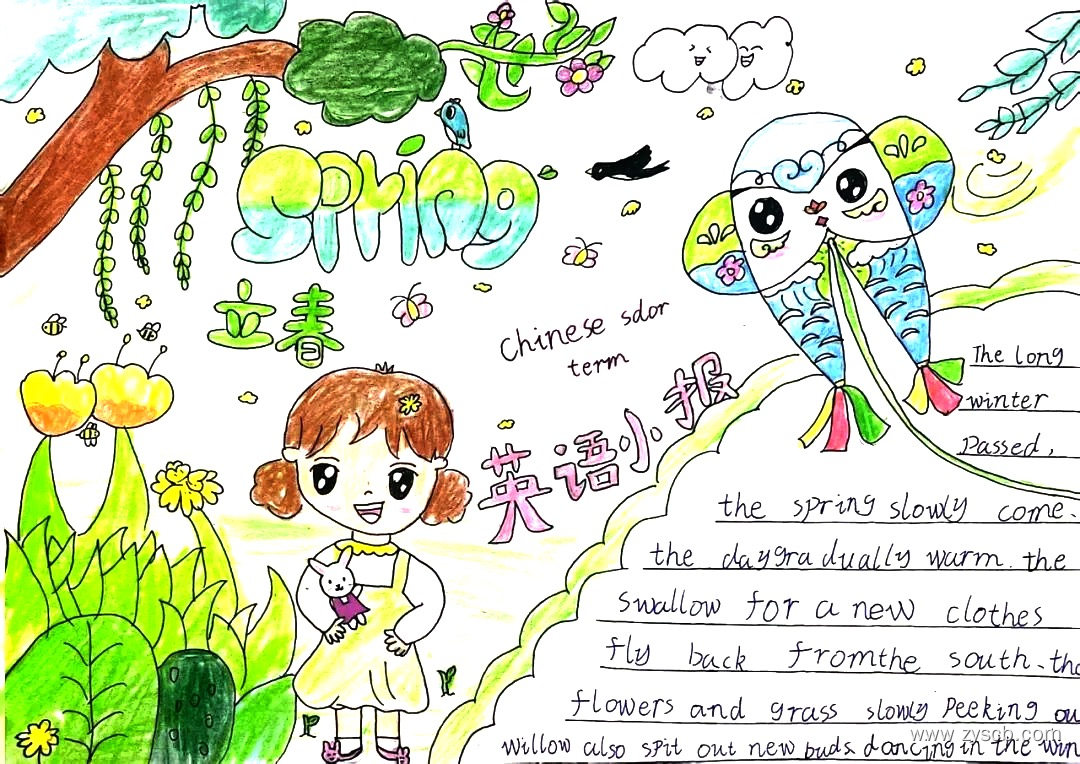 spring
立春
Chinese sdor
term
英语小报
The long
winter
Passed,
the spring slowly come.
the daygradually wurm. the
swallow for a new clothes
fly back fromthe south. the
flowers and grass slowly Peeking ou
www.zyscb.com
willow also spit out new buds. dancing in the win